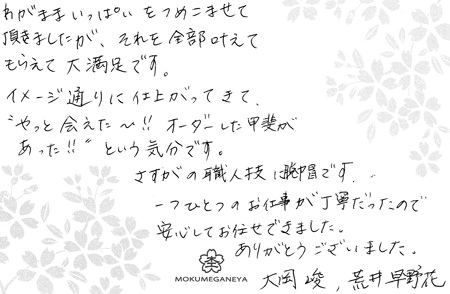 わがままいっぱいをつめこませて
頂きましたが、それを全部叶えて
もらえて大満足です。
イメージ通りに仕上がってきて、
"やっと会えた〜!! オーダーした甲斐が
あった!!" という気分です。
さすがの職人技に脱帽です。
一つひとつのお仕事が丁寧だったので
安心してお任せできました。
ありがとうございました。
MOKUMEGANEYA
大岡 峻, 荒井早野花